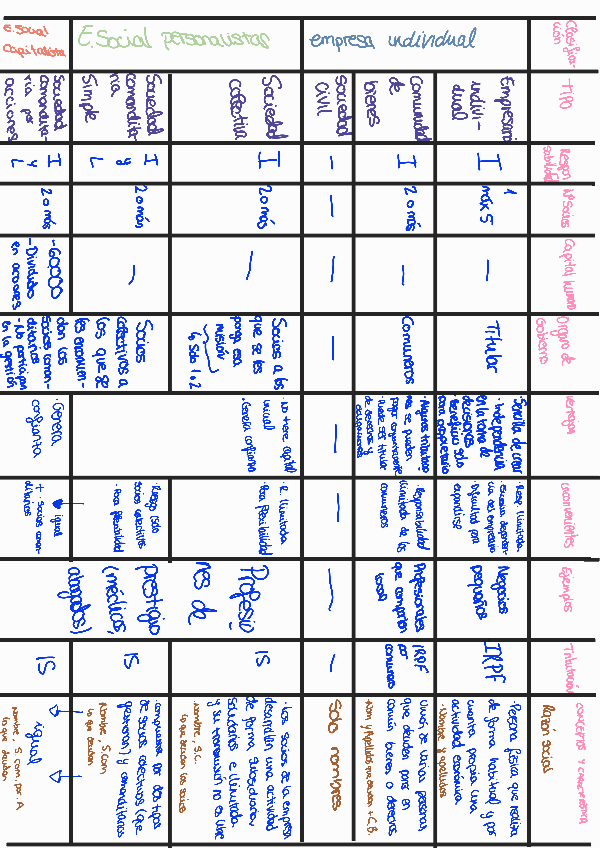 Clasifica-
ción
TIPO
Respon
sabilidad
Nº Socios
Capital humano
Órgano de
Gobierno
ventajas
inconvenientes
Ejemplos
Tributación
conceptos y características
Razón social
empresa individual
Empresario
indivi-
dual
I
1
máx 5
—
Titular
Sencilla de crear
· Independencia
en la toma de
decisiones
· Beneficio solo
para propietario
· Resp. ilimitada
· Dificultad para
expandirse
Negocios
pequeños
IRPF
· Persona física que realiza
de forma habitual y por
cuenta propia una
actividad económica
· Nombre y apellidos
Comunidad
de
bienes
I
2 o más
—
Comuneros
· Responsabilidad
ilimitada de los
comuneros
Profesionales
que comparten
local
IRPF
por
comunero
Unión de varias personas
que deciden poner en
común bienes o derechos
Sociedad
Civil
—
—
—
—
—
—
—
—
Solo nombres
E. Social personalistas
Sociedad
colectiva
I
2 o más
—
Socios a los
que se les
ponga esa
misión
↳ Solo 1 o 2
· No tiene capital
inicial
· Genera confianza
· R. Ilimitada
· Poca flexibilidad
Profesio
nes de
prestigio
(médicos,
abogados)
IS
· Los socios de la empresa
desarrollan una actividad
de forma subsidiaria,
solidaria e ilimitada
y su transmisión no es libre
Nombre, S.C.
lo que decidan los socios
Sociedad
comandita-
ria
Simple
I
y
L
2 o más
—
Socios
colectivos a
los que se
les encomien-
dan los
Riesgo solo
socios colectivos
· Poca flexibilidad
IS
compuesta por dos tipos
de socios colectivos (que
gestionan) y comanditarios
Nombre, S.com
lo que decidan
E. Social
Capitalista
Sociedad
comandita-
ria por
acciones
I
y
L
2 o más
- 60000
- Dividido
en acciones
socios coman-
ditarios
- No participan
en la gestión
· Genera
confianza
igual
+ · Socios coman-
ditarios
IS
igual
Nombre, S com. por A
lo que decidan